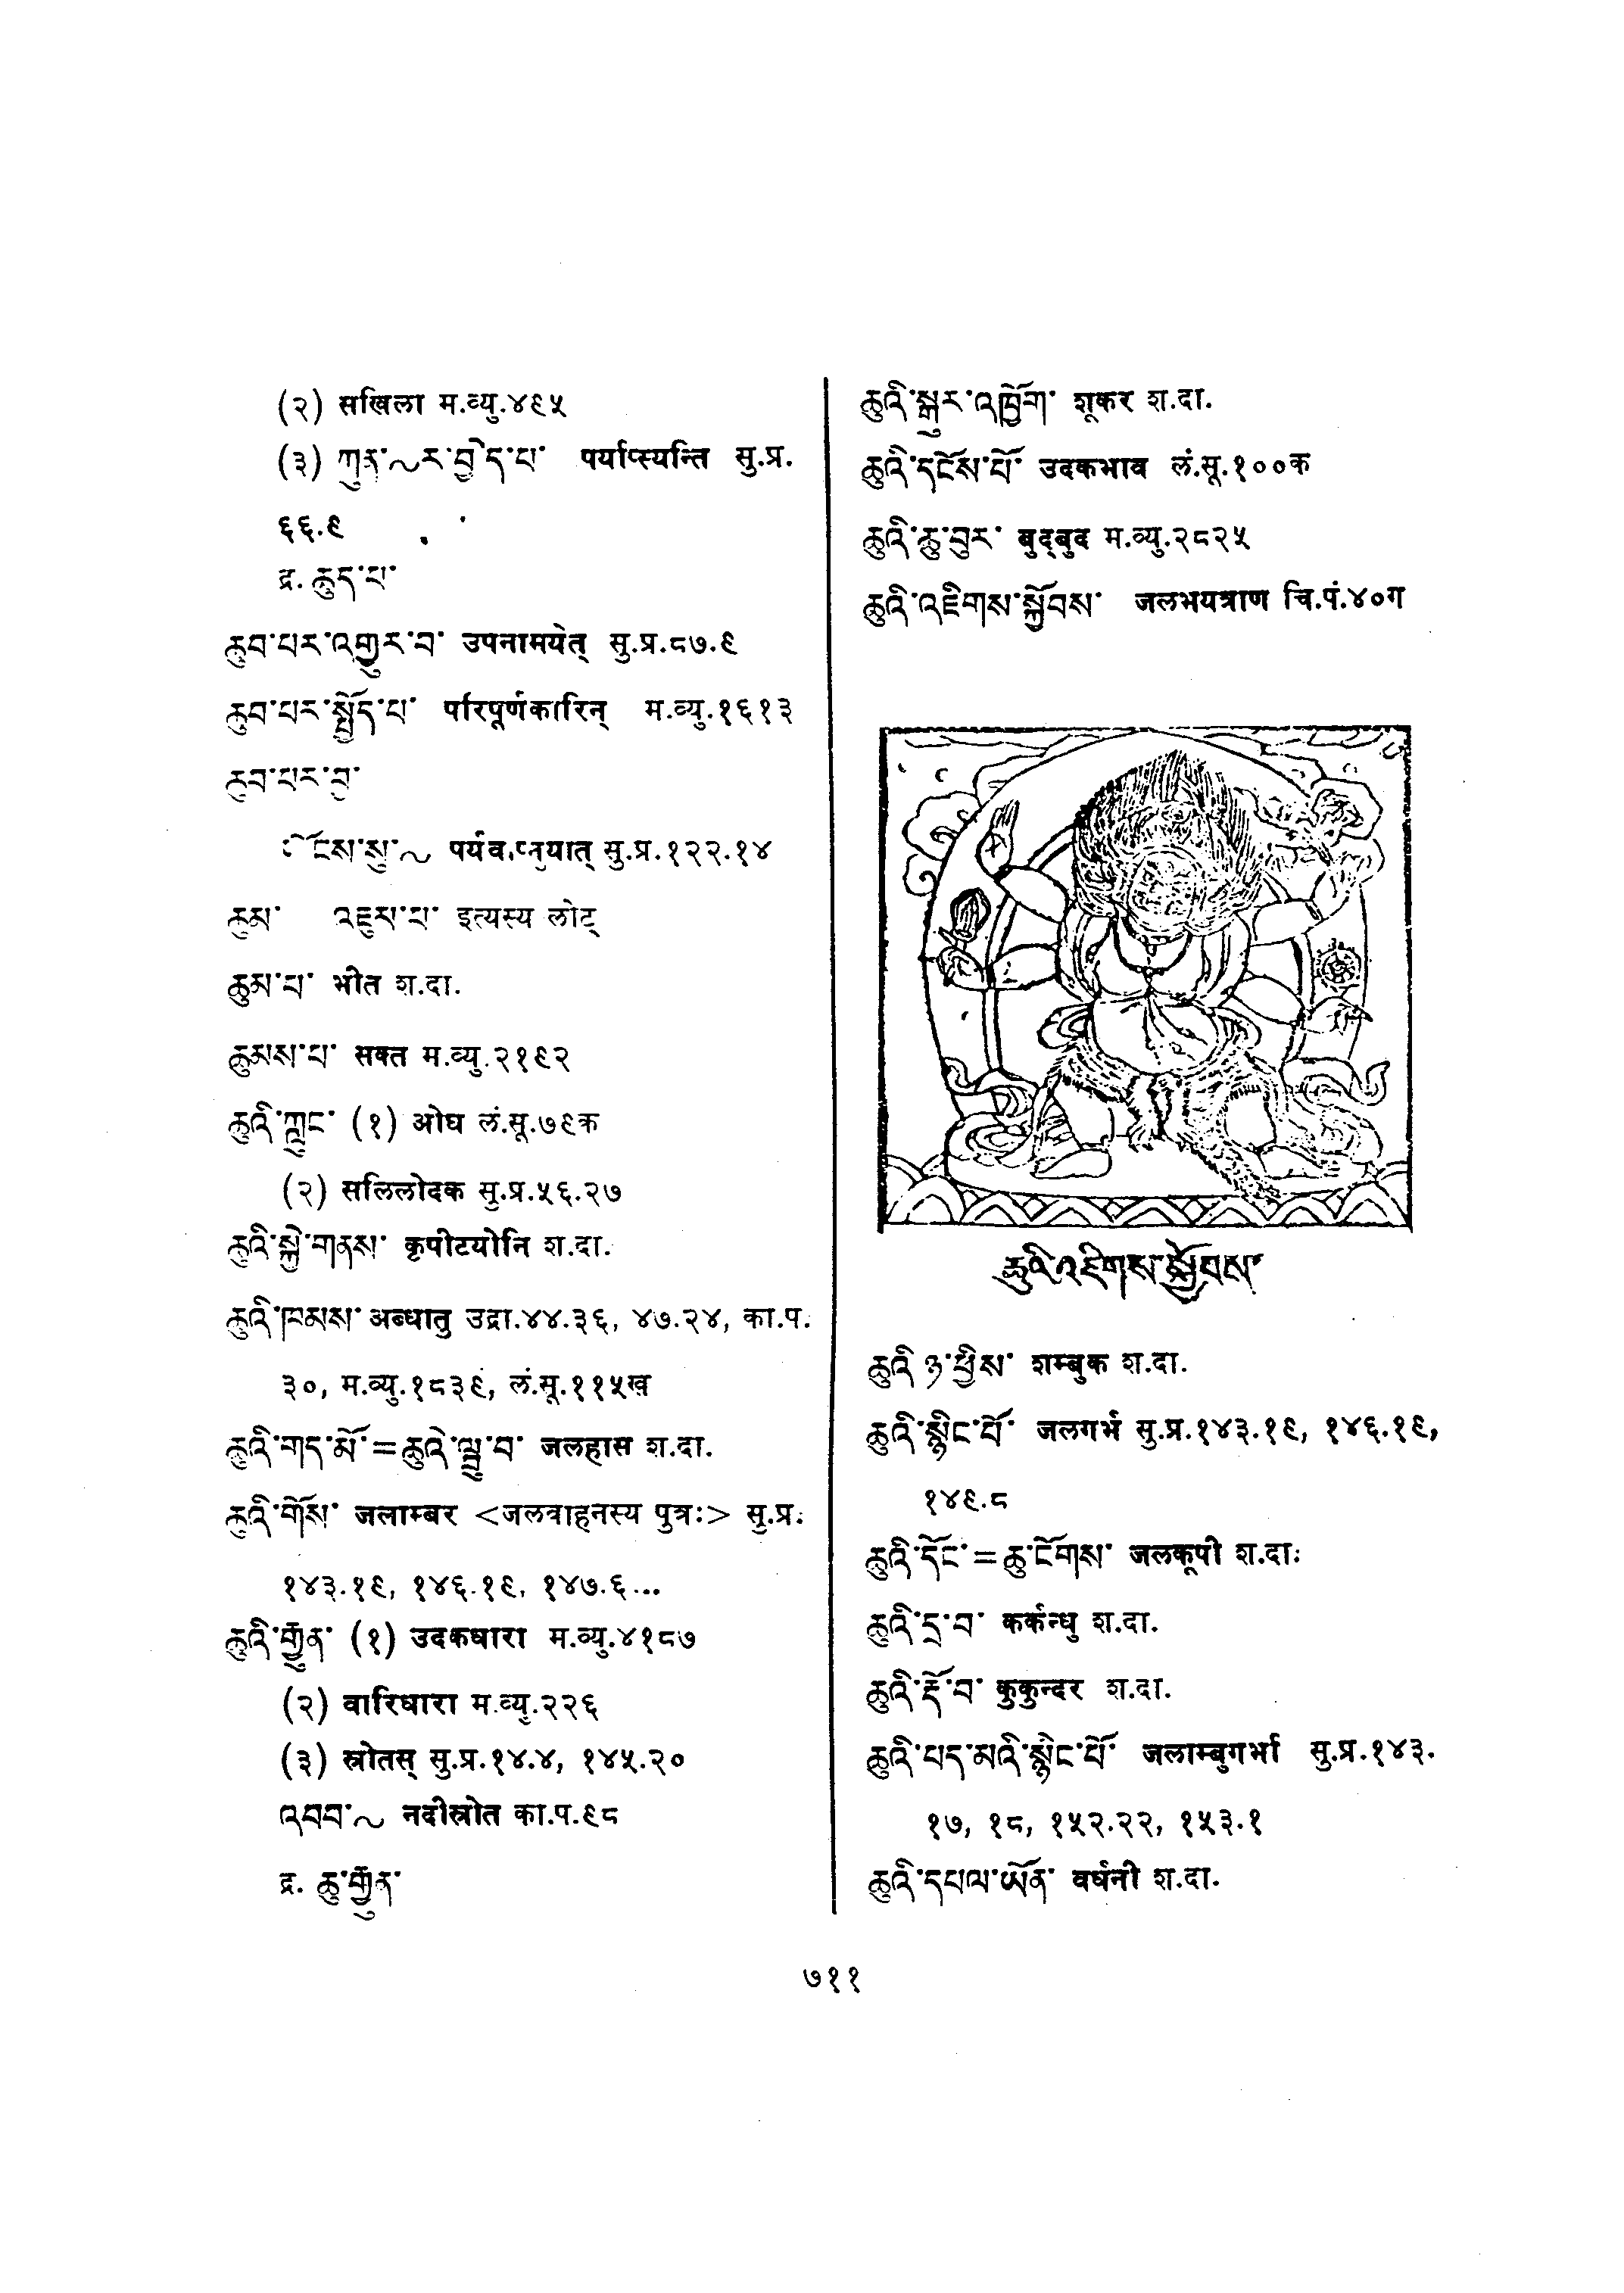 (२) सखिला म.व्यु.४९५
(३) ཀུན་~ར་བྱེད་པ་ पर्याप्स्यन्ति सु.प्र.
६६.९
द्र. ཆུད་པ་
ཆུབ་པར་འགྱུར་བ་ उपनामयेत् सु.प्र.८७.९
ཆུབ་པར་སྤྱོད་པ་ परिपूर्णकारिन् म.व्यु.१६१३
ཆུབ་པར་བྱ་
ངོས་སུ་~ पर्यवाप्नुयात् सु.प्र.१२२.१४
ཆུམ་ འཇུམ་པ་ इत्यस्य लोट्
ཆུམ་པ་ भीत श.दा.
ཆུམས་པ་ सक्त म.व्यु.२१९२
ཆུའི་ཀླུང་ (१) ओघ लं.सू.७९क
(२) सलिलोदक सु.प्र.५६.२७
ཆུའི་སྐྱེ་གནས་ कृपीटयोनि श.दा.
ཆུའི་ཁམས་ अब्धातु उद्रा.४४.३६, ४७.२४, का.प.
३०, म.व्यु.१८३९, लं.सू.११५ख
ཆུའི་གད་མོ་=ཆུའི་ལྦུ་བ་ जलहास श.दा.
ཆུའི་གོས་ जलाम्बर <जलवाहनस्य पुत्रः> सु.प्र.
१४३.१९, १४६.१९, १४७.६...
ཆུའི་རྒྱུན་ (१) उदकधारा म.व्यु.४१८७
(२) वारिधारा म.व्यु.२२६
(३) स्रोतस् सु.प्र.१४.४, १४५.२०
འབབ་~ नदीस्रोत का.प.९८
द्र. ཆུ་རྒྱུན་
ཆུའི་སྒུར་འཁྱོག་ शूकर श.दा.
ཆུའི་དངོས་པོ་ उदकभाव लं.सू.१००क
ཆུའི་ཆུ་བུར་ बुद्बुद म.व्यु.२८२५
ཆུའི་འཇིགས་སྐྱོབས་ जलभयत्राण चि.पं.४०ग
ཆུའི་འཇིགས་སྐྱོབས་
ཆུའི་ཉ་ཕྱིས་ शम्बुक श.दा.
ཆུའི་སྙིང་པོ་ जलगर्भ सु.प्र.१४३.१९, १४६.१९,
१४९.८
ཆུའི་དོང་=ཆུ་ངོགས་ जलकूपी श.दा.
ཆུའི་དྲ་བ་ कर्कन्धु श.दा.
ཆུའི་རྡོ་བ་ कुकुन्दर श.दा.
ཆུའི་པད་མའི་སྙིང་པོ་ जलाम्बुगर्भा सु.प्र.१४३.
१७, १८, १५२.२२, १५३.१
ཆུའི་དཔལ་ཡོན་ वर्धनी श.दा.
७११